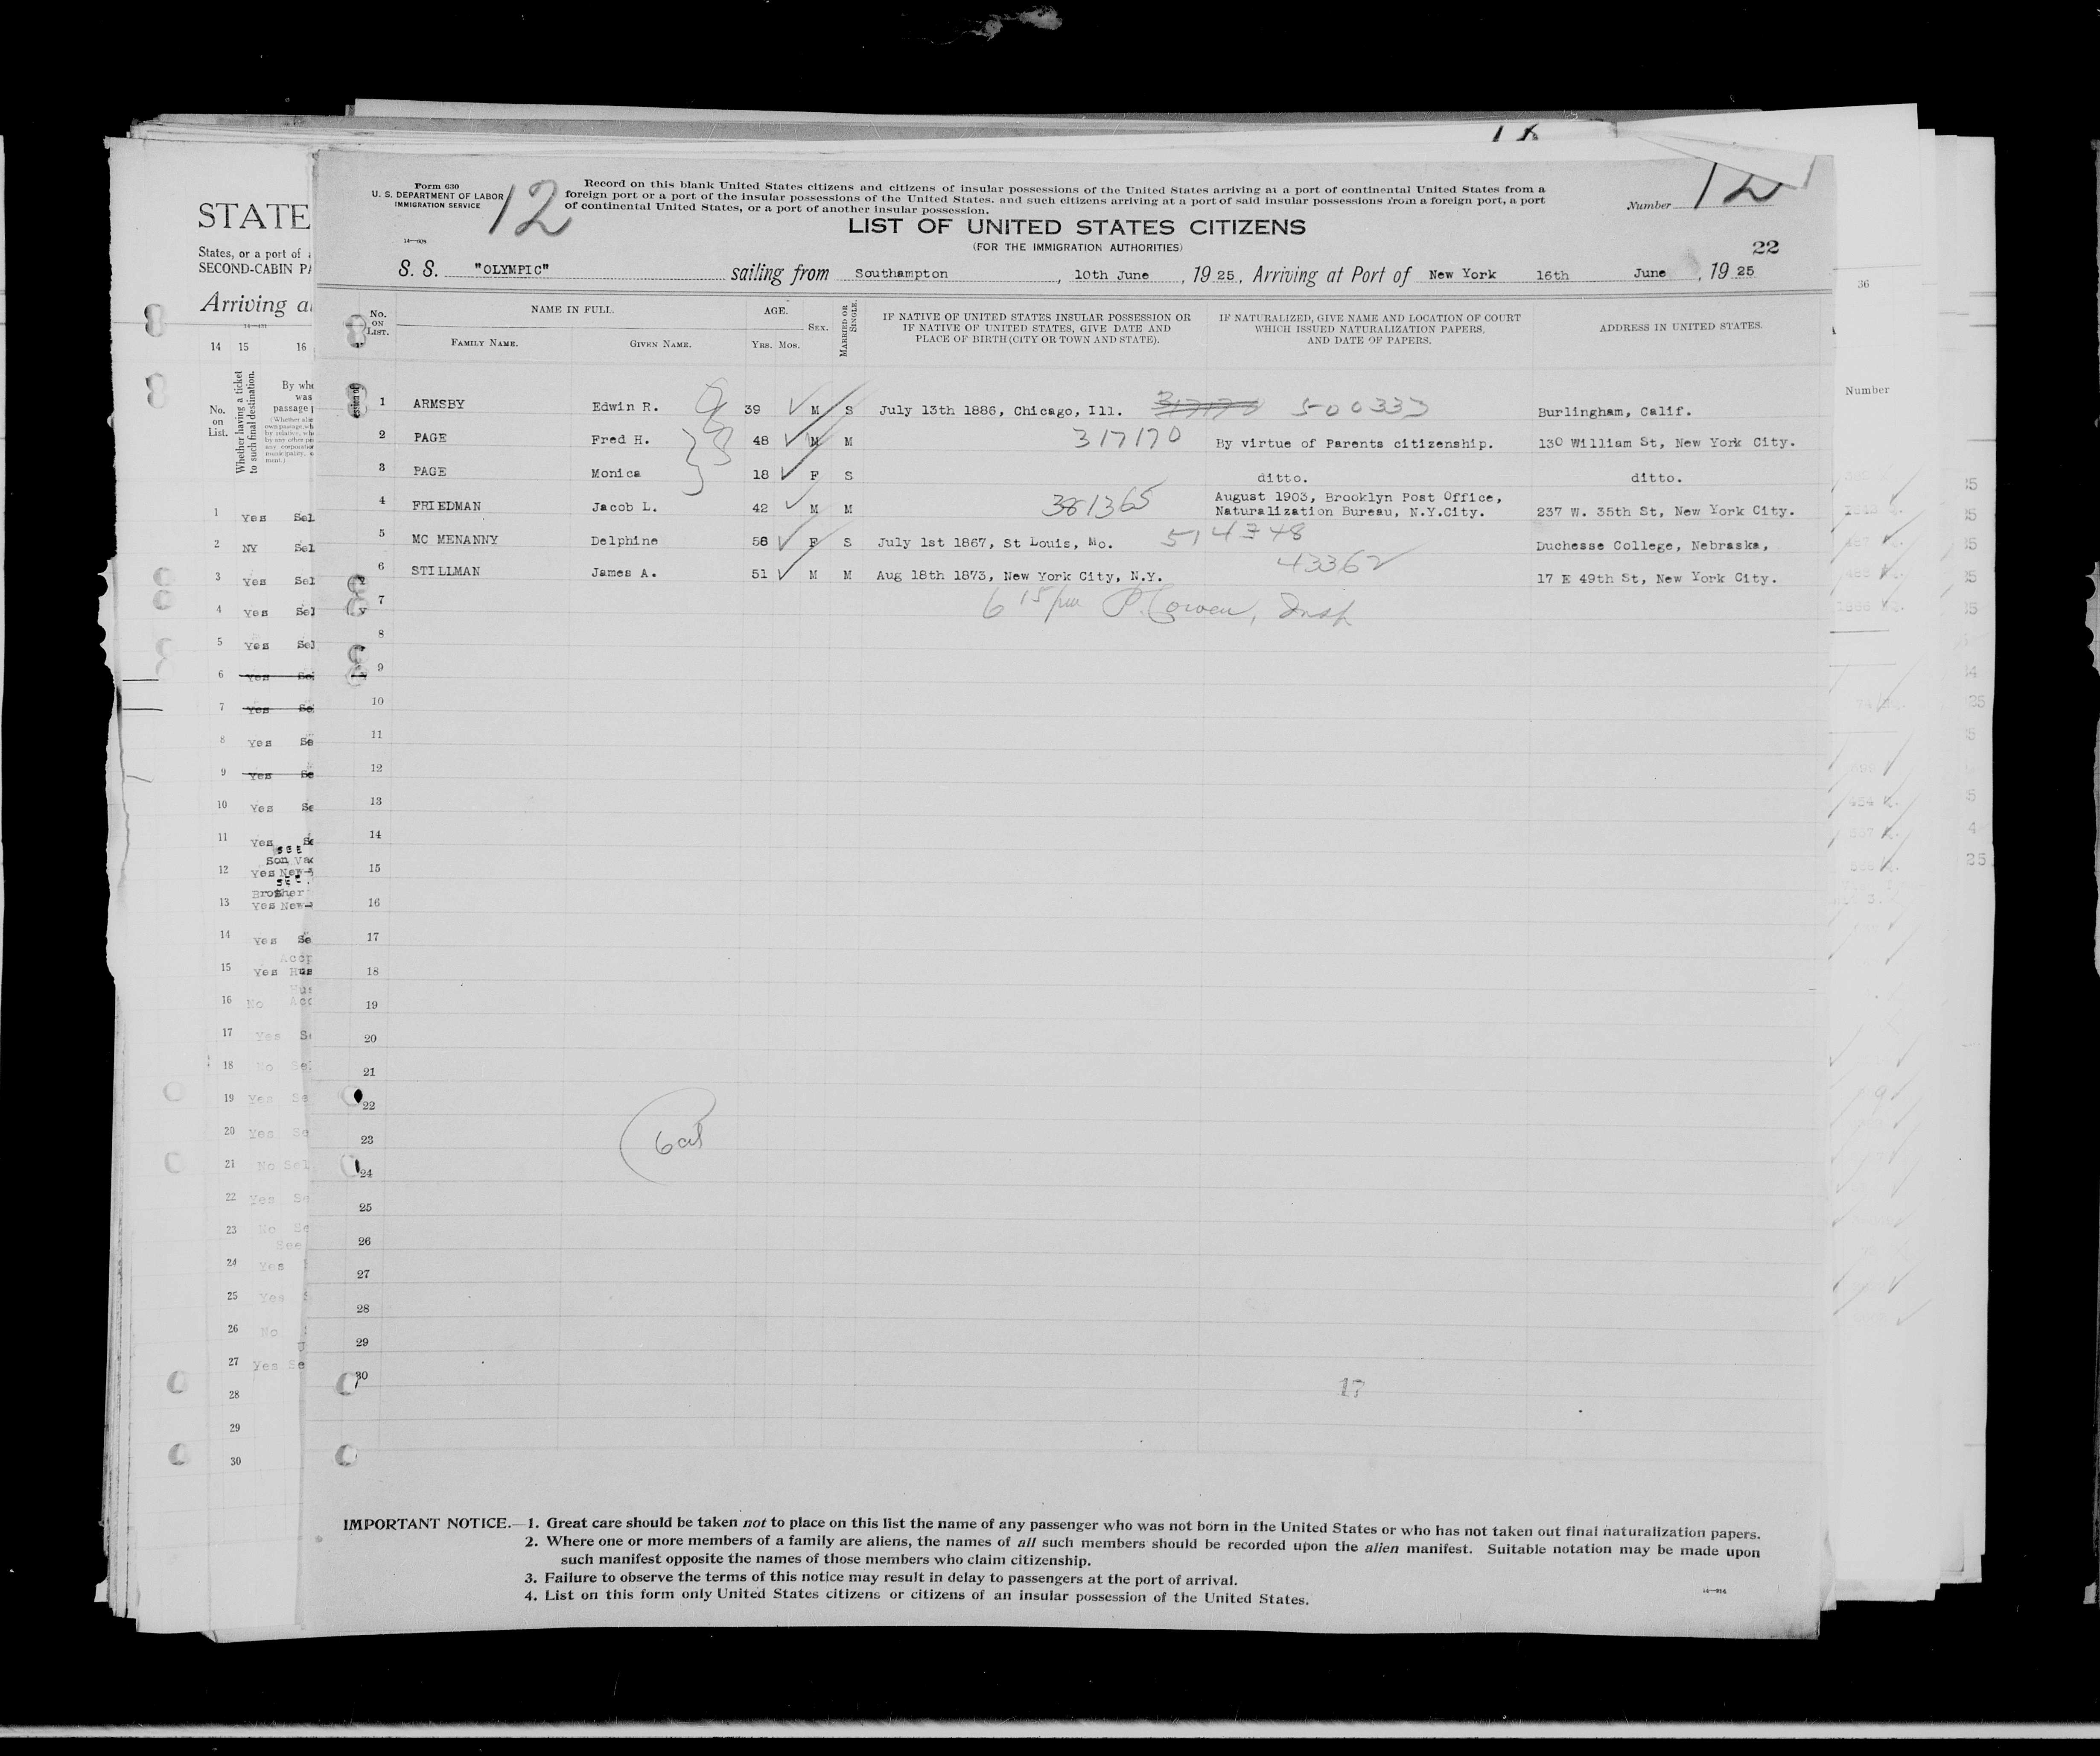 Form 630
U. S. DEPARTMENT OF LABOR
IMMIGRATION SERVICE
12
Record on this blank United States citizens and citizens of insular possessions of the United States arriving at a port of continental United States from a
foreign port or a port of the insular possessions of the United States, and such citizens arriving at a port of said insular possessions from a foreign port, a port
of continental United States, or a port of another insular possession.
Number 12
LIST OF UNITED STATES CITIZENS
(FOR THE IMMIGRATION AUTHORITIES)
22
S. S. "OLYMPIC" sailing from Southampton, 10th June, 1925, Arriving at Port of New York 16th June, 1925
No. ON LIST.
NAME IN FULL.
FAMILY NAME.
GIVEN NAME.
AGE.
YRS. MOS.
SEX.
MARRIED OR SINGLE.
IF NATIVE OF UNITED STATES INSULAR POSSESSION OR
IF NATIVE OF UNITED STATES, GIVE DATE AND
PLACE OF BIRTH (CITY OR TOWN AND STATE).
IF NATURALIZED, GIVE NAME AND LOCATION OF COURT
WHICH ISSUED NATURALIZATION PAPERS,
AND DATE OF PAPERS.
ADDRESS IN UNITED STATES.
1 ARMSBY Edwin R. 39 M S July 13th 1886, Chicago, Ill. 500333 Burlingham, Calif.
2 PAGE Fred H. 48 M M 317170 By virtue of Parents citizenship. 130 William St, New York City.
3 PAGE Monica 18 F S ditto. ditto.
4 FRIEDMAN Jacob L. 42 M M 381365 August 1903, Brooklyn Post Office,
Naturalization Bureau, N.Y.City. 237 W. 35th St, New York City.
5 MC MENANNY Delphine 58 F S July 1st 1867, St Louis, Mo. 514348 Duchesse College, Nebraska,
6 STILLMAN James A. 51 M M Aug 18th 1873, New York City, N.Y. 43362 17 E 49th St, New York City.
7 6 15 pm P. Cowen, Insp
8
9
10
11
12
13
14
15
16
17
18
19
20
21
22
23
24
25
26
27
28
29
30
17
IMPORTANT NOTICE.—1. Great care should be taken not to place on this list the name of any passenger who was not born in the United States or who has not taken out final naturalization papers.
2. Where one or more members of a family are aliens, the names of all such members should be recorded upon the alien manifest. Suitable notation may be made upon
such manifest opposite the names of those members who claim citizenship.
3. Failure to observe the terms of this notice may result in delay to passengers at the port of arrival.
4. List on this form only United States citizens or citizens of an insular possession of the United States.
STATE
States, or a port of
SECOND-CABIN
Arriving
14 15 16
No. on List.
Whether having a ticket to such final destination.
By
was
passage
1 Yes
2 NY
3 Yes
4 Yes
5 Yes
6 Yes
7 Yes
8 Yes
9 Yes
10 Yes
11 Yes
SEE
Son
12 Yes New
SEE
Brother
13 Yes New
14 Yes
15 Yes
16 No
17 Yes
18 No
19 Yes
20 Yes
21 No
22 Yes
23 No
See
24 Yes
25 Yes
26 No
27 Yes
28
29
30
36
Number